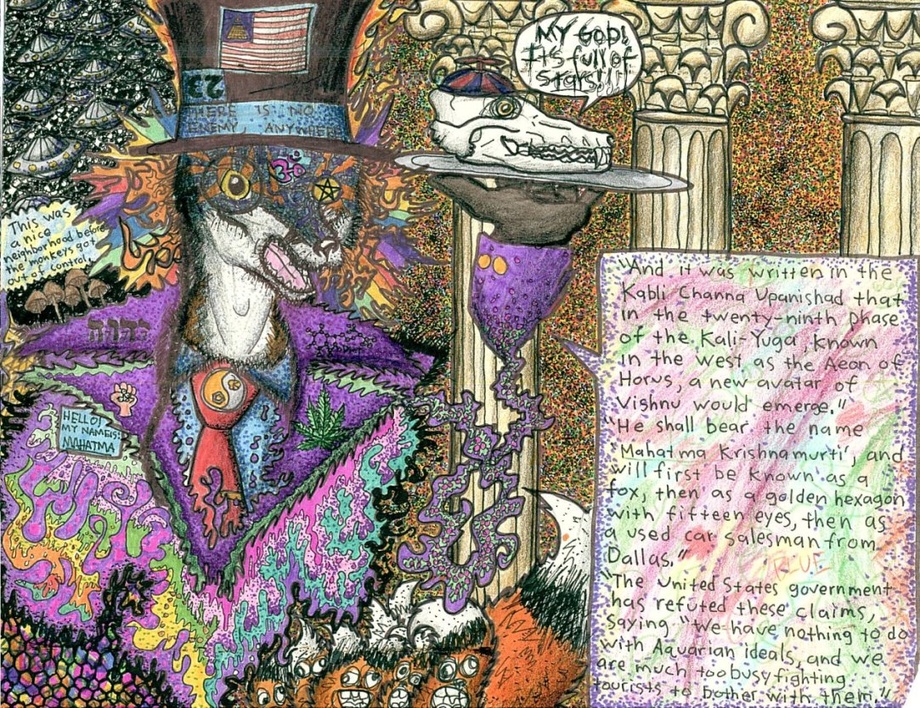 23
THERE IS NO
ENEMY ANYWHERE
MY GOD!
It's full of
stars!!!!
This was
a nice
neighborhood before
the monkeys got
out of control
יהוה
HELLO!
MY NAME IS:
MAHATMA
"And it was written in the
Kabli Channa Upanishad that
in the twenty-ninth phase
of the Kali-Yuga, known
in the west as the Aeon of
Horus, a new avatar of
Vishnu would emerge."
"He shall bear the name
'Mahatma Krishnamurti', and
will first be known as a
fox, then as a golden hexagon
with fifteen eyes, then as
a used car salesman from
Dallas."
"The United States government
has refuted these claims,
saying "We have nothing to do
with Aquarian ideals, and we
are much too busy fighting
tourists to bother with them."